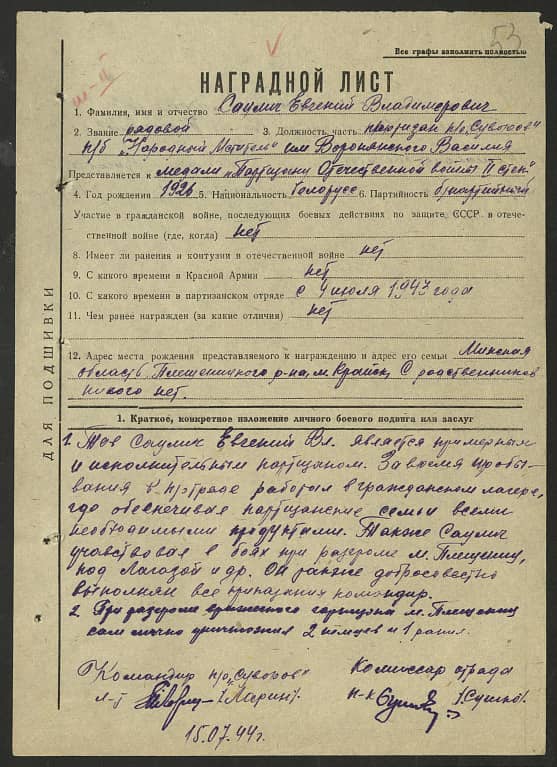 53
Все графы заполнять полностью
НАГРАДНОЙ ЛИСТ
1. Фамилия, имя и отчество Саулич Евгений Владимирович
2. Звание рядовой 3. Должность часть партизан п/о „Суворов"
п/б „Народный Мститель" им Воронянского Василия
Представляется к медали „Партизану Отечественной войны II степ."
4. Год рождения 1926 5. Национальность белорусс 6. Партийность б/партийный
Участие в гражданской войне, последующих боевых действиях по защите СССР в отече-
ственной войне (где, когда) нет
8. Имеет ли ранения и контузии в отечественной войне нет
9. С какого времени в Красной Армии нет
10. С какого времени в партизанском отряде с 4 июля 1943 года
11. Чем ранее награжден (за какие отличия) нет
12. Адрес места рождения представляемого к награждению и адрес его семьи Минская
область Плещеничского р-на, м Крайск, С родственников
никого нет.
ДЛЯ ПОДШИВКИ
1. Краткое, конкретное изложение личного боевого подвига или заслуг
1. Тов Саулич Евгений Вл. является примерным
и исполнительным партизаном. За время пробы-
вания в п/отряде работал в гражданском лагере,
где обеспечивал партизанские семьи всеми
необходимыми продуктами. Также Саулич
учавствовал в боях при разгроме м. Плещениц,
под Лагазой и др. Он также добросовестно
выполнял все приказания командир.
2 При разгроме вражеского гарнизона м. Плещениц
сам лично уничтожил 2 немцев и 1 ранил.
Командир п/о „Суворов" Комиссар отряда
л-т (Ларин) п-к (Сушко)
15.07.44 г.